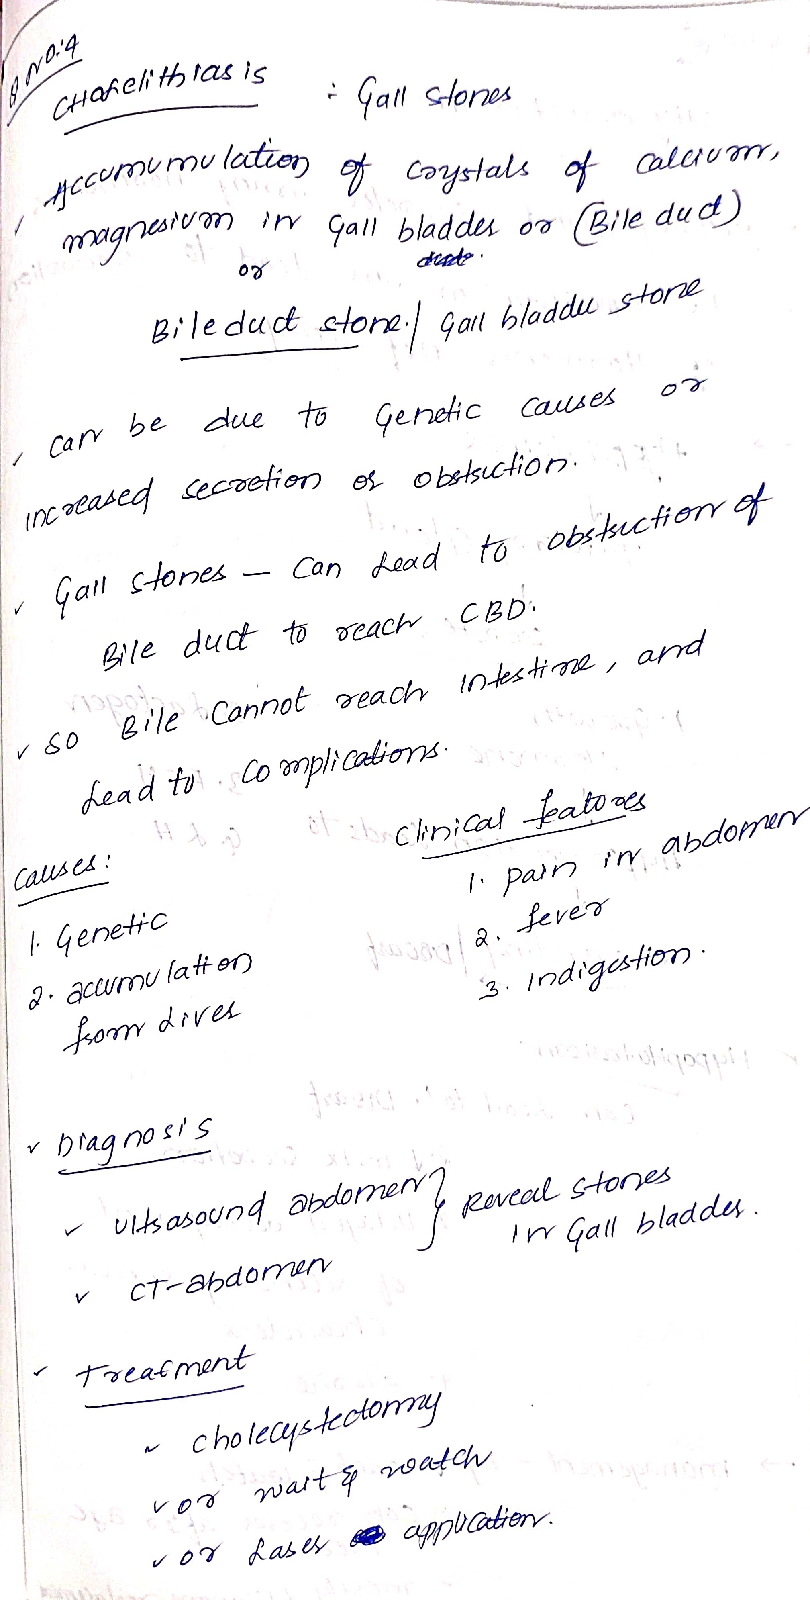 Q NO:4
CHolelithiasis : Gall stones
Accumumulation of crystals of calcium,
magnesium in Gall bladder or (Bile duct)
or
Bile duct stone / Gall bladder stone
can be due to Genetic causes or
increased secretion or obstruction.
Gall stones – can Lead to obstruction of
Bile duct to reach CBD.
so Bile Cannot reach Intestine, and
Lead to Complications.
Clinical features
1. pain in abdomen
2. fever
3. Indigestion.
Causes:
1. Genetic
2. accumulation
from Liver
Diagnosis
Ultrasound abdomen } Reveal stones
in Gall bladder.
CT-abdomen
Treatment
cholecystectomy
or wait & watch
or Laser application.